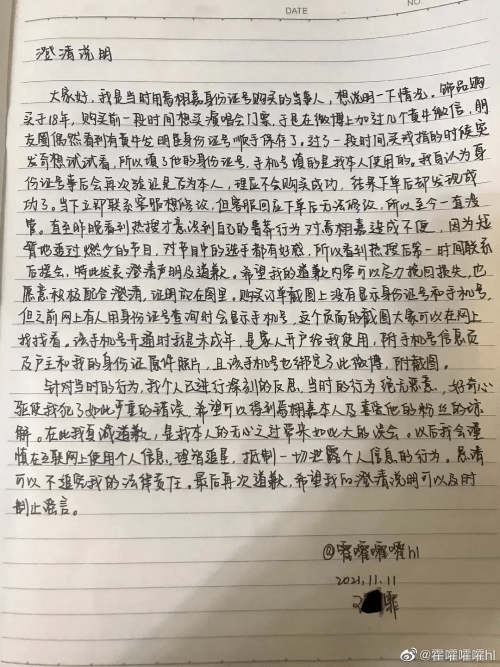 DATE
NO.
澄清说明
大家好,我是当时用焉栩嘉身份证号购买的当事人,想说明一下情况。饰品购
买于18年,购买前一段时间想买演唱会门票,于是在微博上加过几个黄牛微信,朋
友圈偶然看到有黄牛发明星身份证号顺手保存了。过了一段时间买戒指的时候突
发奇想试试看,所以填了他的身份证号,手机号填的是我本人使用的。我自认为身
份证号事后会再次验证是否为本人,理应不会购买成功,结果下单后却发现成
功了。当下立即联系客服想修改,但客服回应下单后无法修改,所以至今一直没
管。直至昨晚看到热搜才意识到自己的鲁莽行为对焉栩嘉造成了不便,因为经
常地看过燃少的节目,对节目中的选手都有好感,所以看到热搜后第一时间联系
后援会,特此发表澄清声明及道歉。希望我的道歉内容可以尽力挽回损失,也
愿意积极配合澄清,证明放在图里。购买订单截图上没有显示身份证号和手机号,
但之前网上有人用身份证号查询时会显示手机号,这个页面的截图大家可以在网上
找找看。该手机号开通时我是未成年,是家人开户给我使用,附手机号信息页
及户主和我的身份证原件照片,且该手机号也绑定了此微博,附截图。
针对当时的行为,我个人已进行深刻的反思,当时的行为绝无恶意,好奇心
驱使我犯了如此严重的错误,希望可以得到焉栩嘉本人及喜爱他的粉丝的谅
解。在此我真诚道歉,是我本人的无心之过带来如此大的误会。以后我会谨
慎在互联网上使用个人信息,理智追星,抵制一切泄露个人信息的行为。恳请
可以不追究我的法律责任。最后再次道歉,希望我的澄清说明可以及时
制止谣言。
@霍嚯嚯嚯hl
2021.11.11
@霍嚯嚯嚯hl